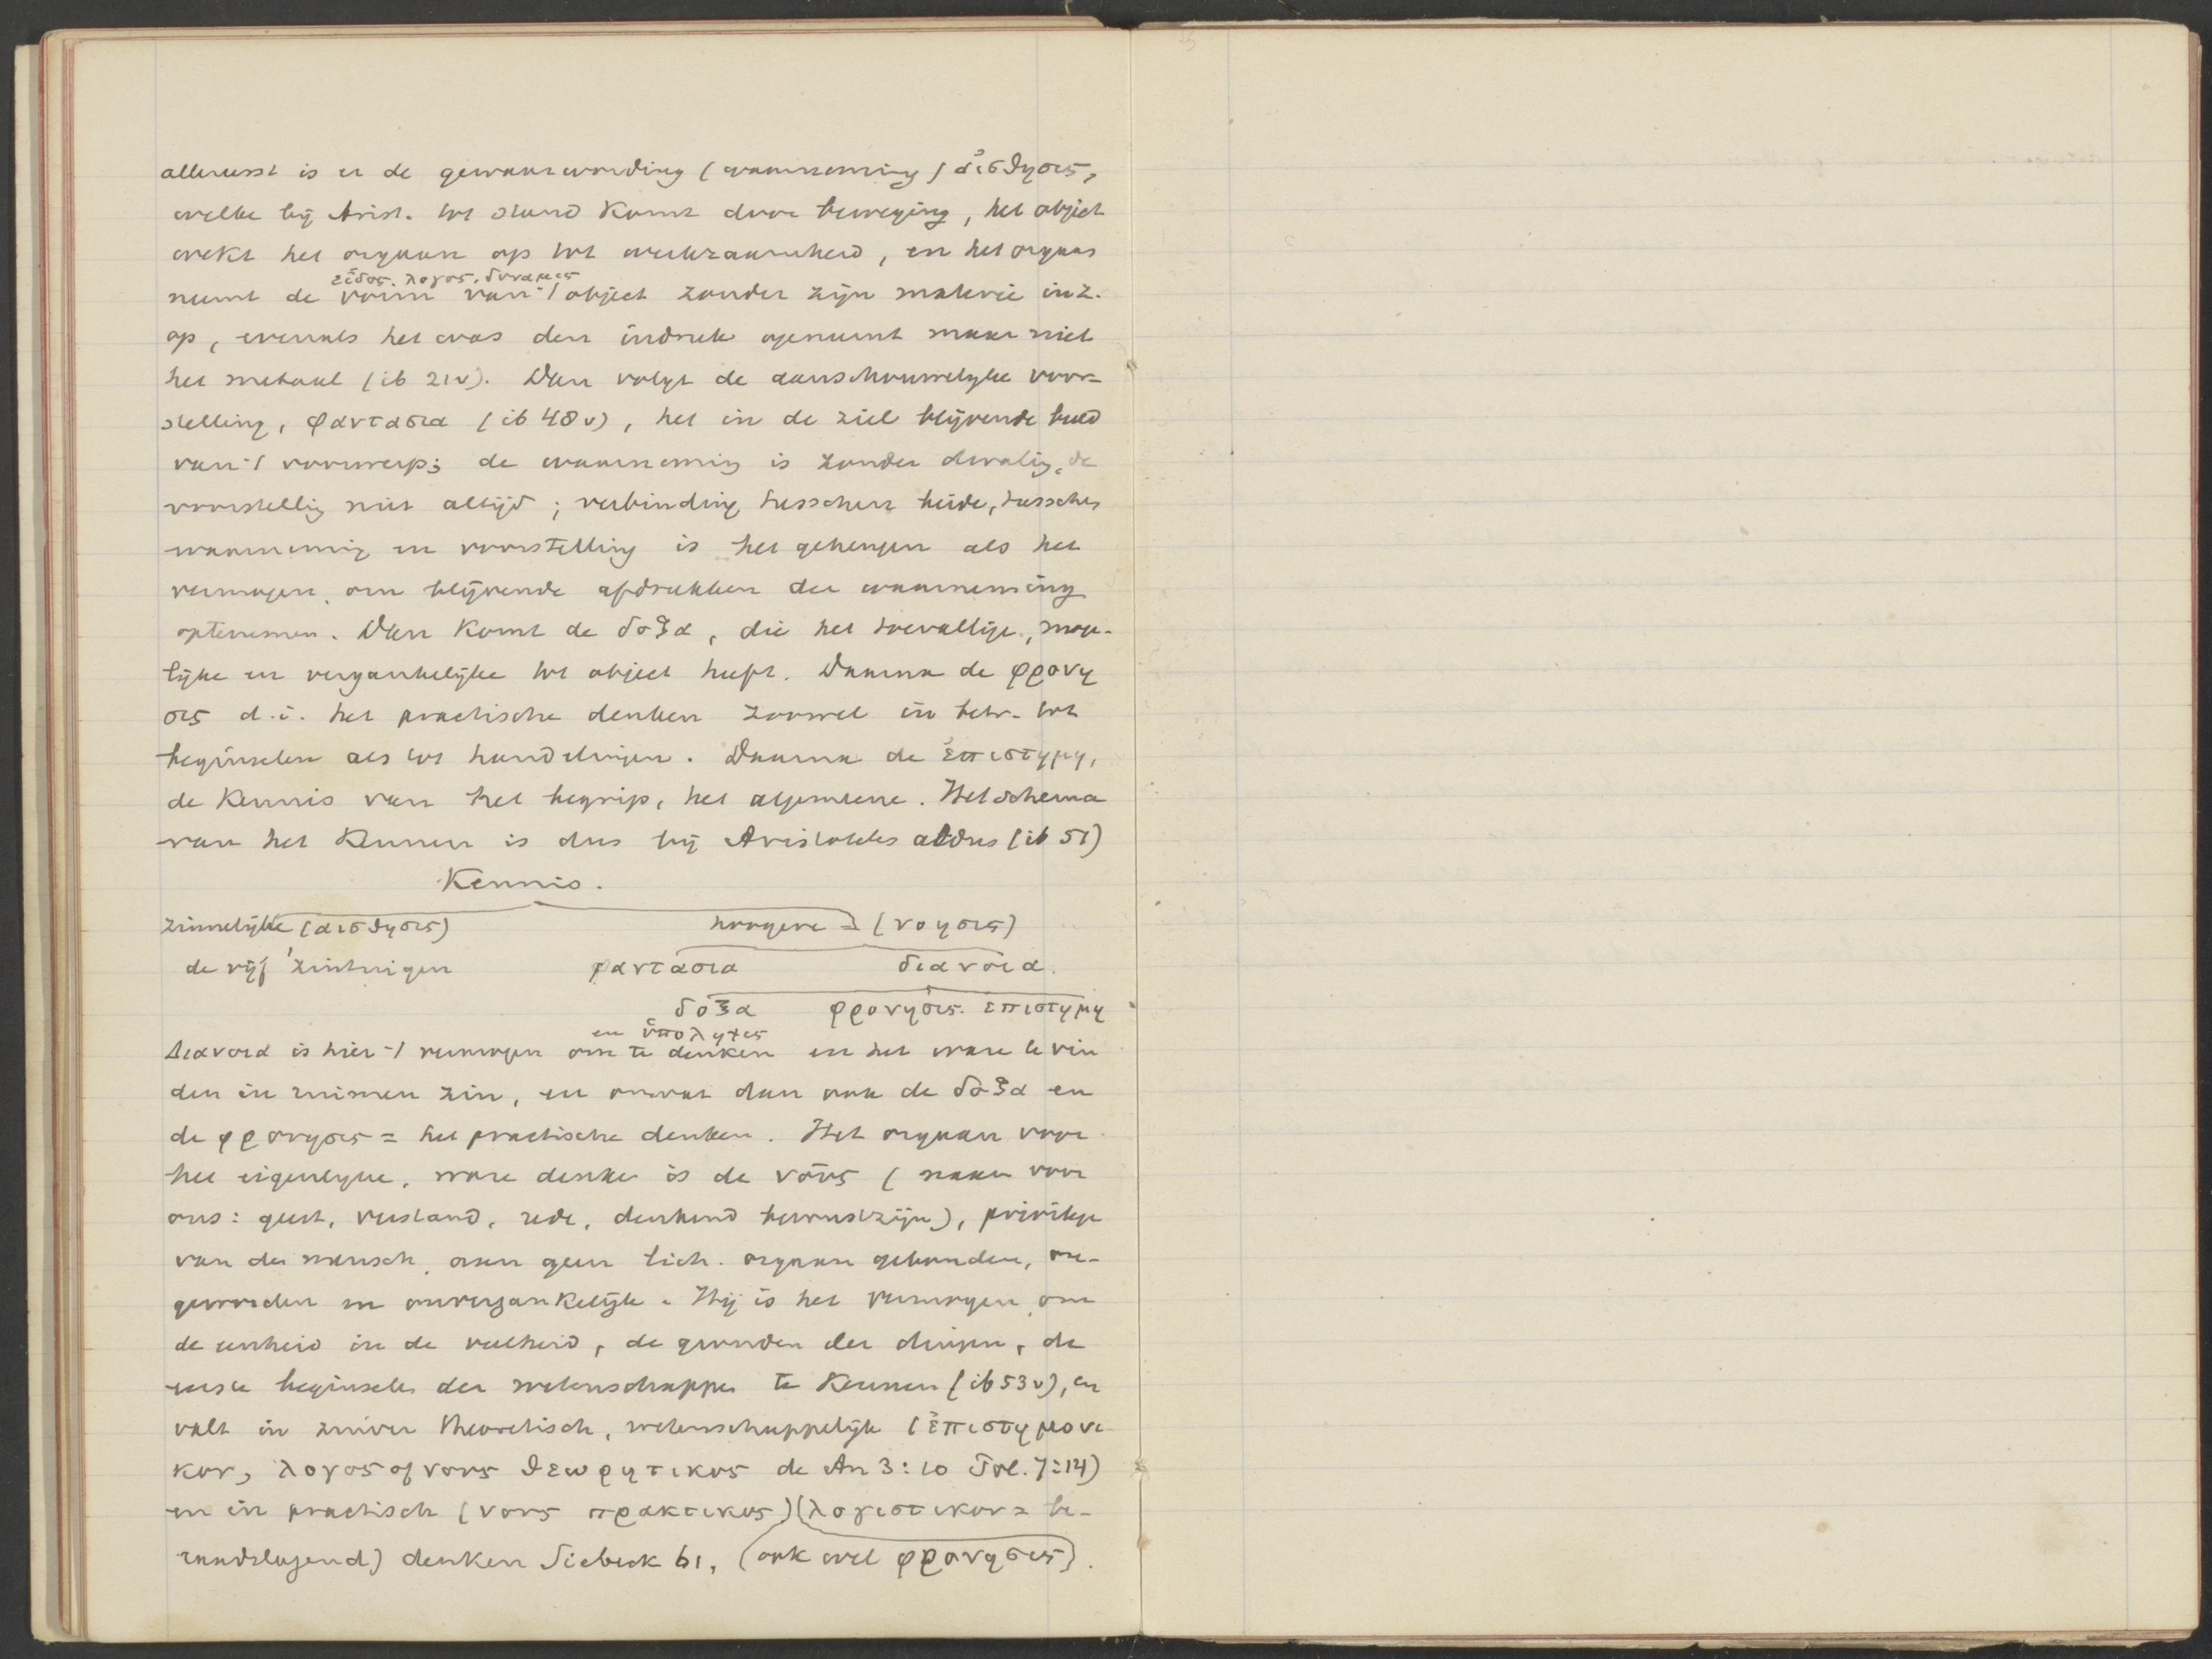 allereerst is er de gewaarwording (waarneming) αἰσθησις,
welke bij Arist. tot stand komt door beweging, het object
wekt het orgaan op tot werkzaamheid, en het orgaan
εἰδος. λογος, δυναμις
neemt de vorm van 't object zonder zijn materie in z.
op, evenals het was den indruk opneemt maar niet
het metaal (ib 21v). Dan volgt de aanschouwelijke voor-
stelling, φαντασια (ib 48v), het in de ziel blijvende beeld
van 't voorwerp; de waarneming is zonder dwaling, de
voorstellig niet altijd; verbinding tusschen beide, tusschen
waarneming en voorstelling is het geheugen als het
vermogen, om blijvende afdrukken der waarneming
optenemen. Dan komt de δοξα, die het toevallige, moge-
lijke en vergankelijke tot object heeft. Daarna de φρονη
σις d.i. het practische denken zoowel in betr. tot
beginselen als tot handelingen. Daarna de ἐπιστημη,
de kennis van het begrip, het algemeene. Het schema
van het kennen is dus bij Aristoteles aldus (ib 51)
Kennis.
zinnelijke (αισθησις) hoogere = (νοησις)
de vijf zintuigen φαντασια διανοια.
δοξα φρονησις. επιστημη
en ὑποληψις
Διανοια is hier 't vermogen om te denken en het ware te vin
den in ruimen zin, en omvat dan ook de δοξα en
de φρονησις = het practische denken. Het orgaan voor
het eigenlijke, ware denken is de νους (naar voor
ons: geest, verstand, rede, denkend bewustzijn), privilege
van den mensch, aan geen lich. orgaan gebonden, on-
geworden en onvergankelijk. Hij is het vermogen, om
de eenheid in de veelheid, de gronden der dingen, de
eerste beginselen der wetenschappen te kennen (ib 53v), en
valt in zuiver theoretisch, wetenschappelijk (ἐπιστημονι
κον, λογος of νους θεωρητικος de An 3:10 Pol. 7:14)
en in practisch (νους πρακτικος) (λογιστικον = be-
raadslagend) denken Siebeck 61, (ook wel φρονησις).